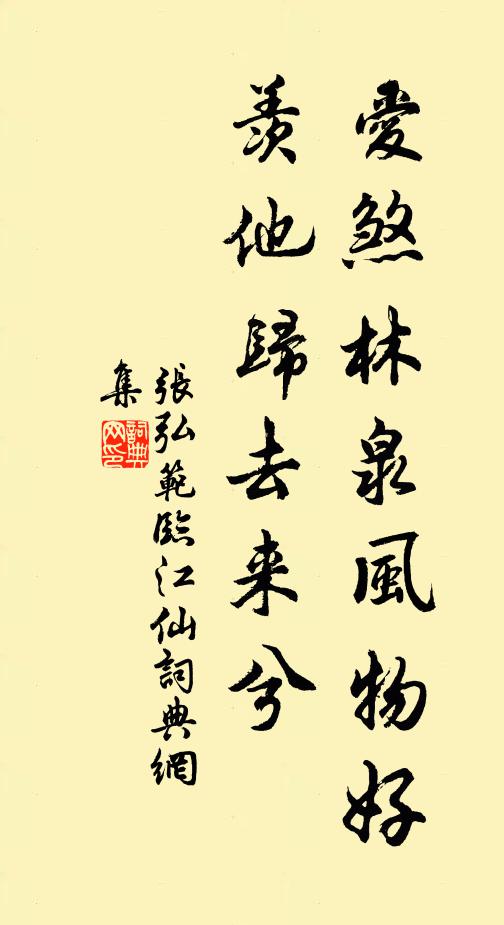 愛煞林泉風物好
羨他歸去来兮
張弘範臨江仙詞典網
集
詞典
网印